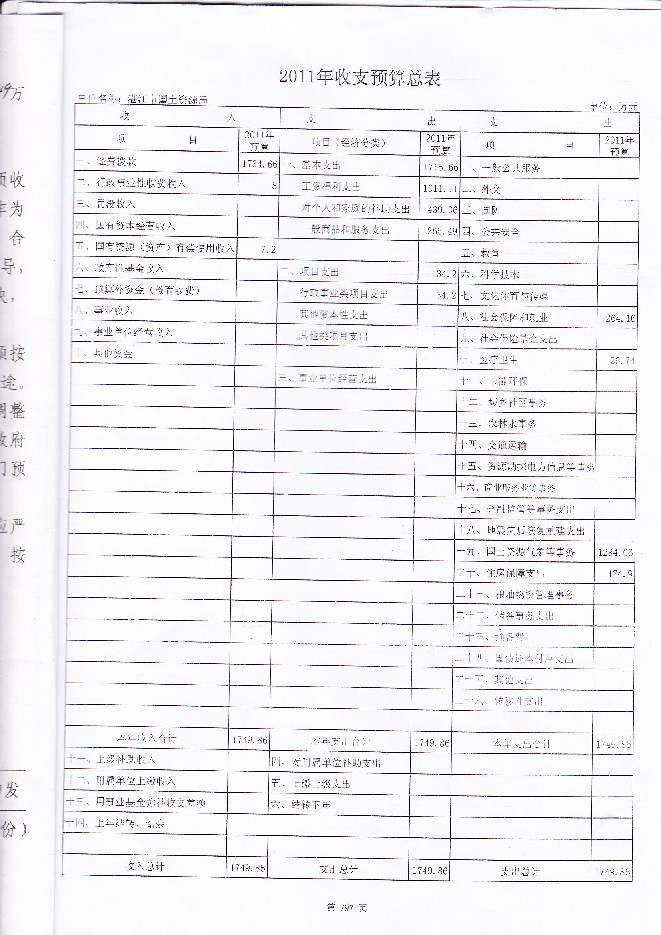 2011年收支预算总表
单位名称：湛江市国土资源局 单位：万元
收 入 支 出 支 出
项 目 2011年预算 项目（经济分类） 2011年预算 项 目 2011年预算
一、经费拨款 1734.66 一、基本支出 1715.66 一、一般公共服务
二、行政事业性收费收入 8 工资福利支出 1011.11 二、外交
三、罚没收入 对个人和家庭的补助支出 439.06 三、国防
四、国有资本经营收入 一般商品和服务支出 265.49 四、公共安全
五、国有资源（资产）有偿使用收入 7.2 五、教育
六、政府性基金收入 二、项目支出 34.2 六、科学技术
七、预算外资金（教育收费） 行政事业类项目支出 34.2 七、文化体育与传媒
八、事业收入 其他资本性支出 八、社会保障和就业 264.16
九、事业单位经营收入 其他类项目支出 九、社会保险基金支出
十、其他资金 十、医疗卫生 26.74
三、事业单位经营支出 十一、节能环保
十二、城乡社区事务
十三、农林水事务
十四、交通运输
十五、资源勘探电力信息等事务
十六、商业服务业等事务
十七、金融监管等事务支出
十八、地震灾后恢复重建支出
十九、国土资源气象等事务 1284.03
二十、住房保障支出 174.9
二十一、粮油物资管理事务
二十二、储备事务支出
二十三、预备费
二十四、国债还本付息支出
二十五、其他支出
二十六、转移性支出
本年收入合计 1749.86 本年支出合计 1749.86 本年支出合计 1749.86
十一、上级补助收入 四、对附属单位补助支出
十二、附属单位上缴收入 五、上缴上级支出
十三、用事业基金弥补收支差额 六、结转下年
十四、上年结转、结余
收入总计 1749.86 支出总计 1749.86 支出总计 1749.86
第 797 页